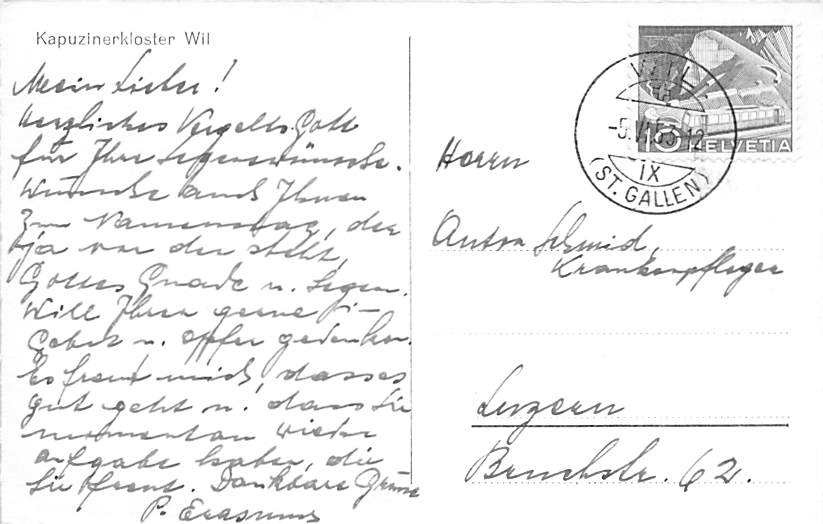 Kapuzinerkloster Wil
Mein Lieber!
Herzliches Vergelts Gott
für Ihre Segenswünsche.
Wünsche auch Ihnen
zum Namenstag, der
ja vor der steht,
Gottes Gnade u. Segen.
Will Ihrer gerne i-
Gebet u. Opfer gedenken.
Es freut mich, dass es
gut geht u. dass Sie
momentan wieder
aufgabe haben, die
Sie freut. Dankbare Grüsse
P. Erasmus
WIL
-5.VI.53-12
IX
(ST. GALLEN)
5 HELVETIA
Herrn
Anton Schmid,
Krankenpfleger
Luzern
Bruchstr. 62.